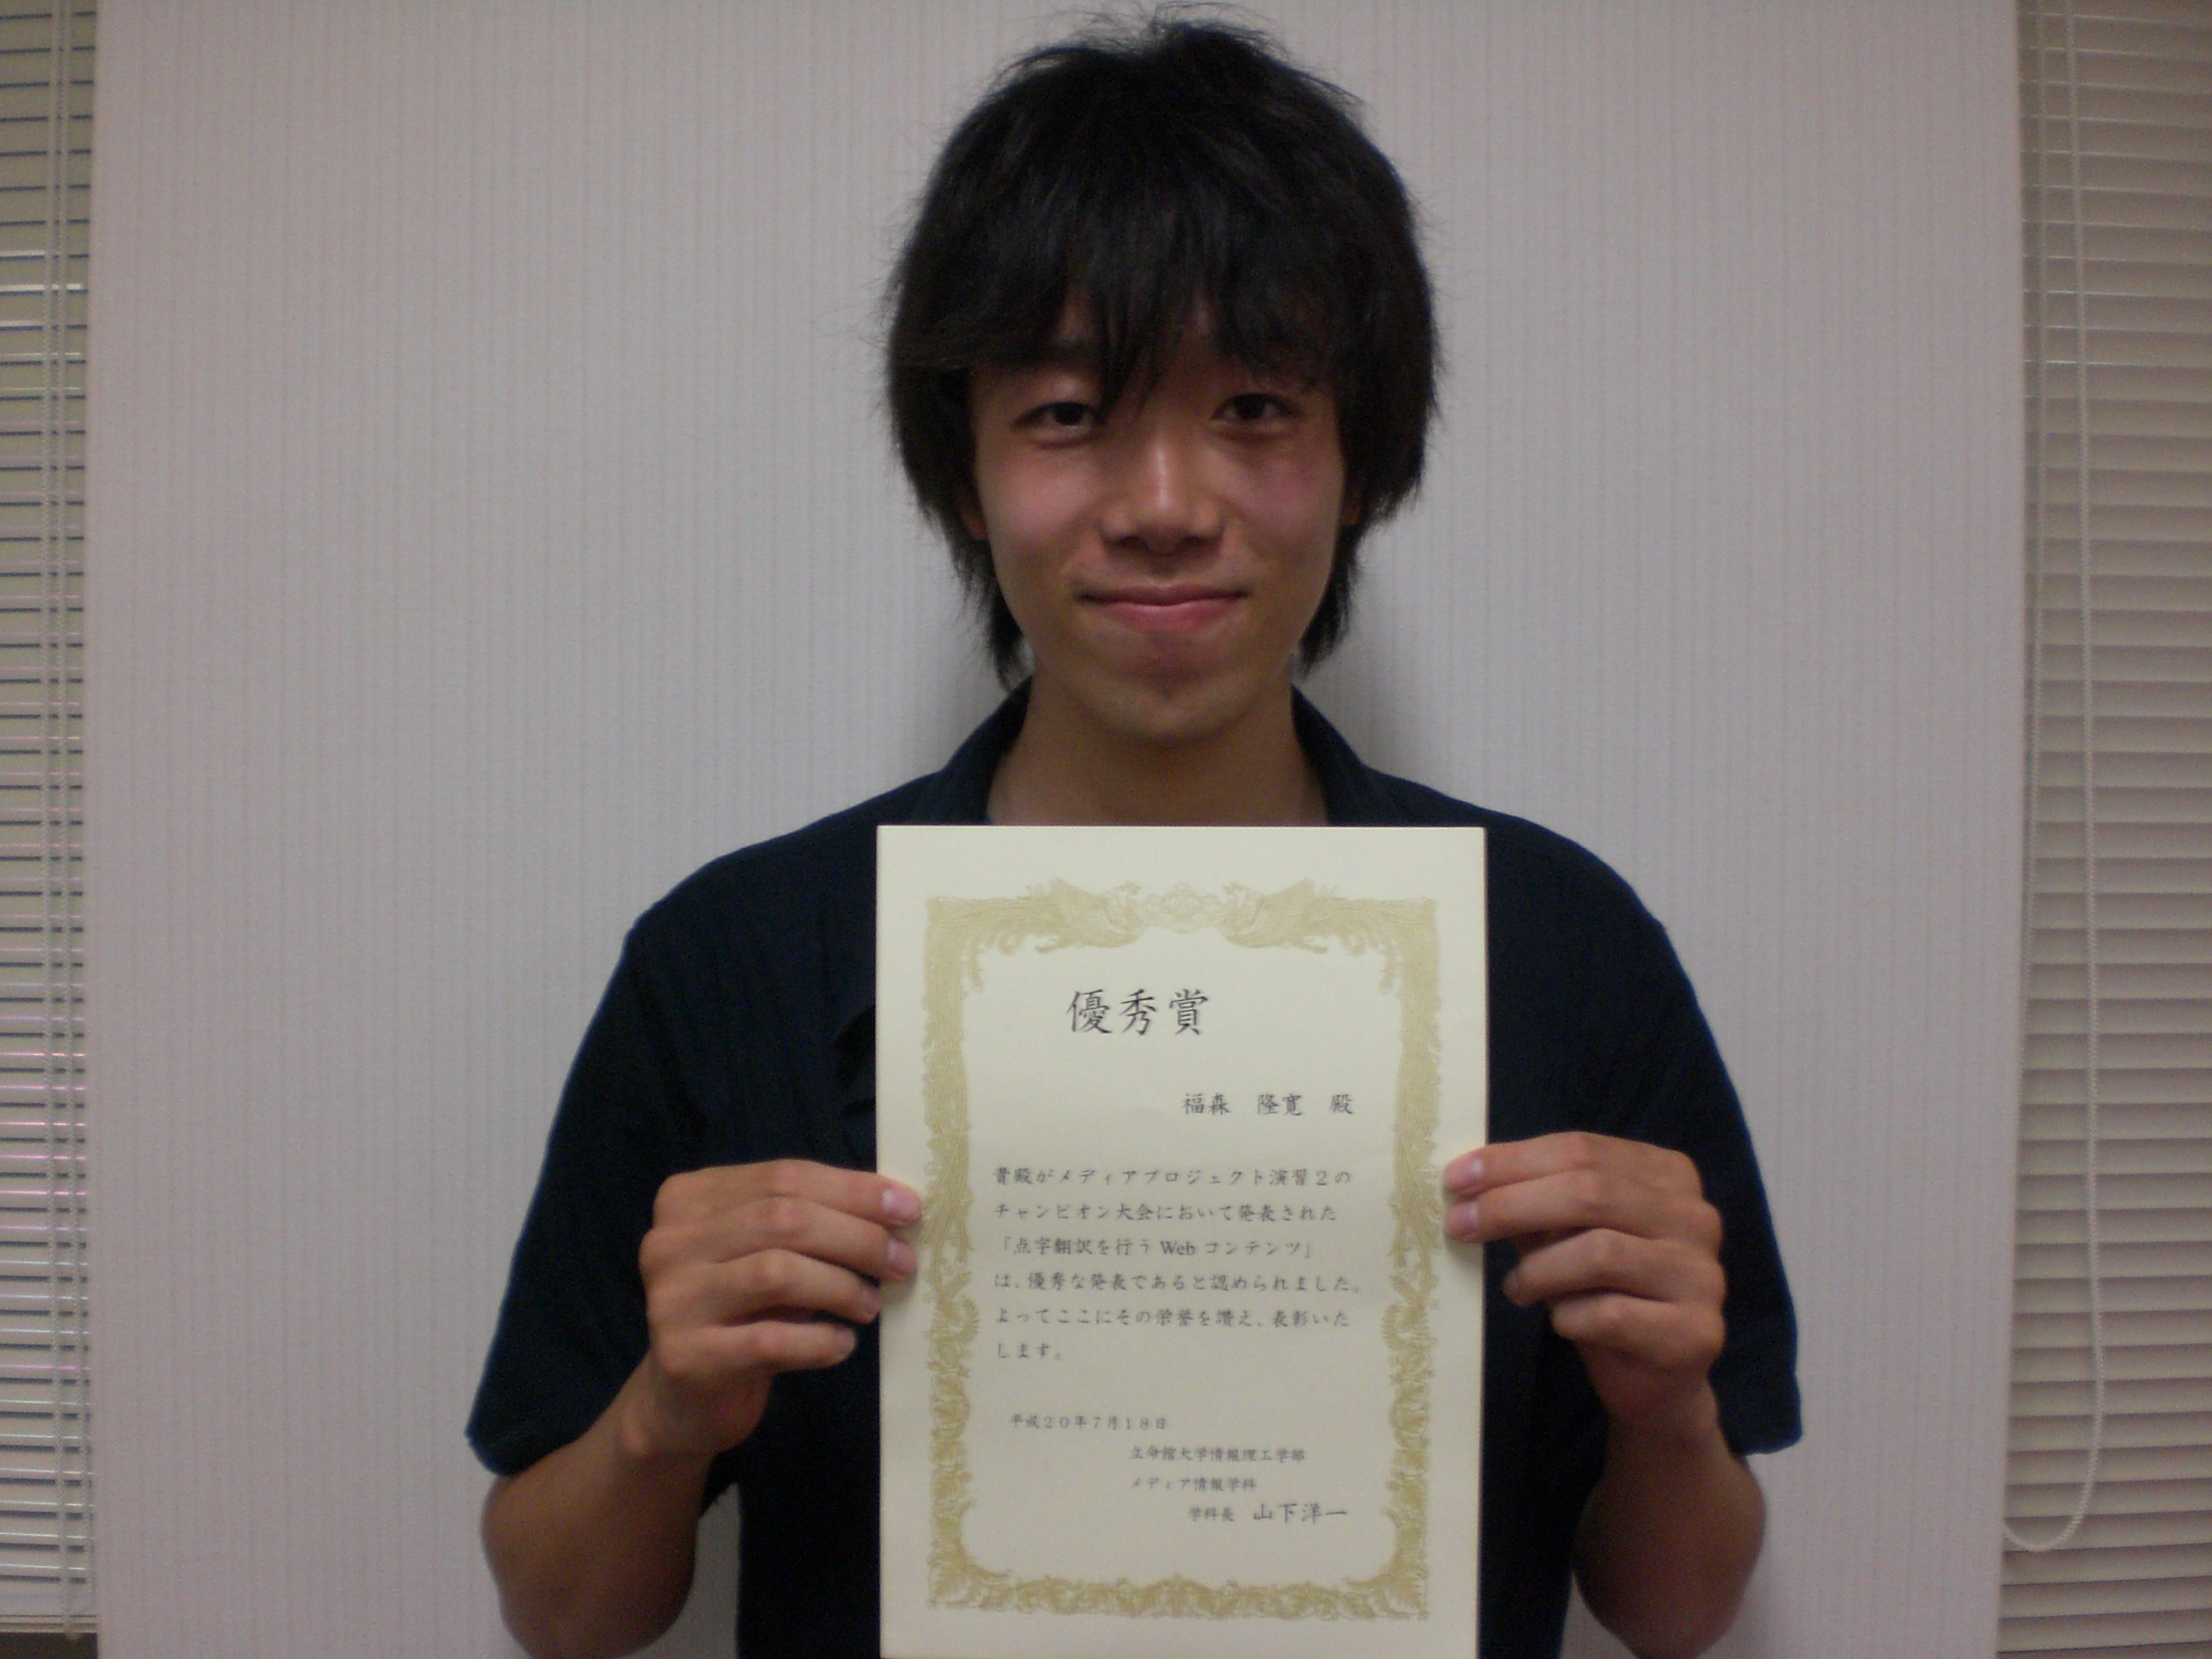 優秀賞
福森 隆寛 殿
貴殿がメディアプロジェクト演習2の
チャンピオン大会において発表された
「点字翻訳を行う Web コンテンツ」
は、優秀な発表であると認められました。
よってここにその栄誉を讃え、表彰いた
します。
平成20年7月18日
立命館大学情報理工学部
メディア情報学科
学科長 山下洋一